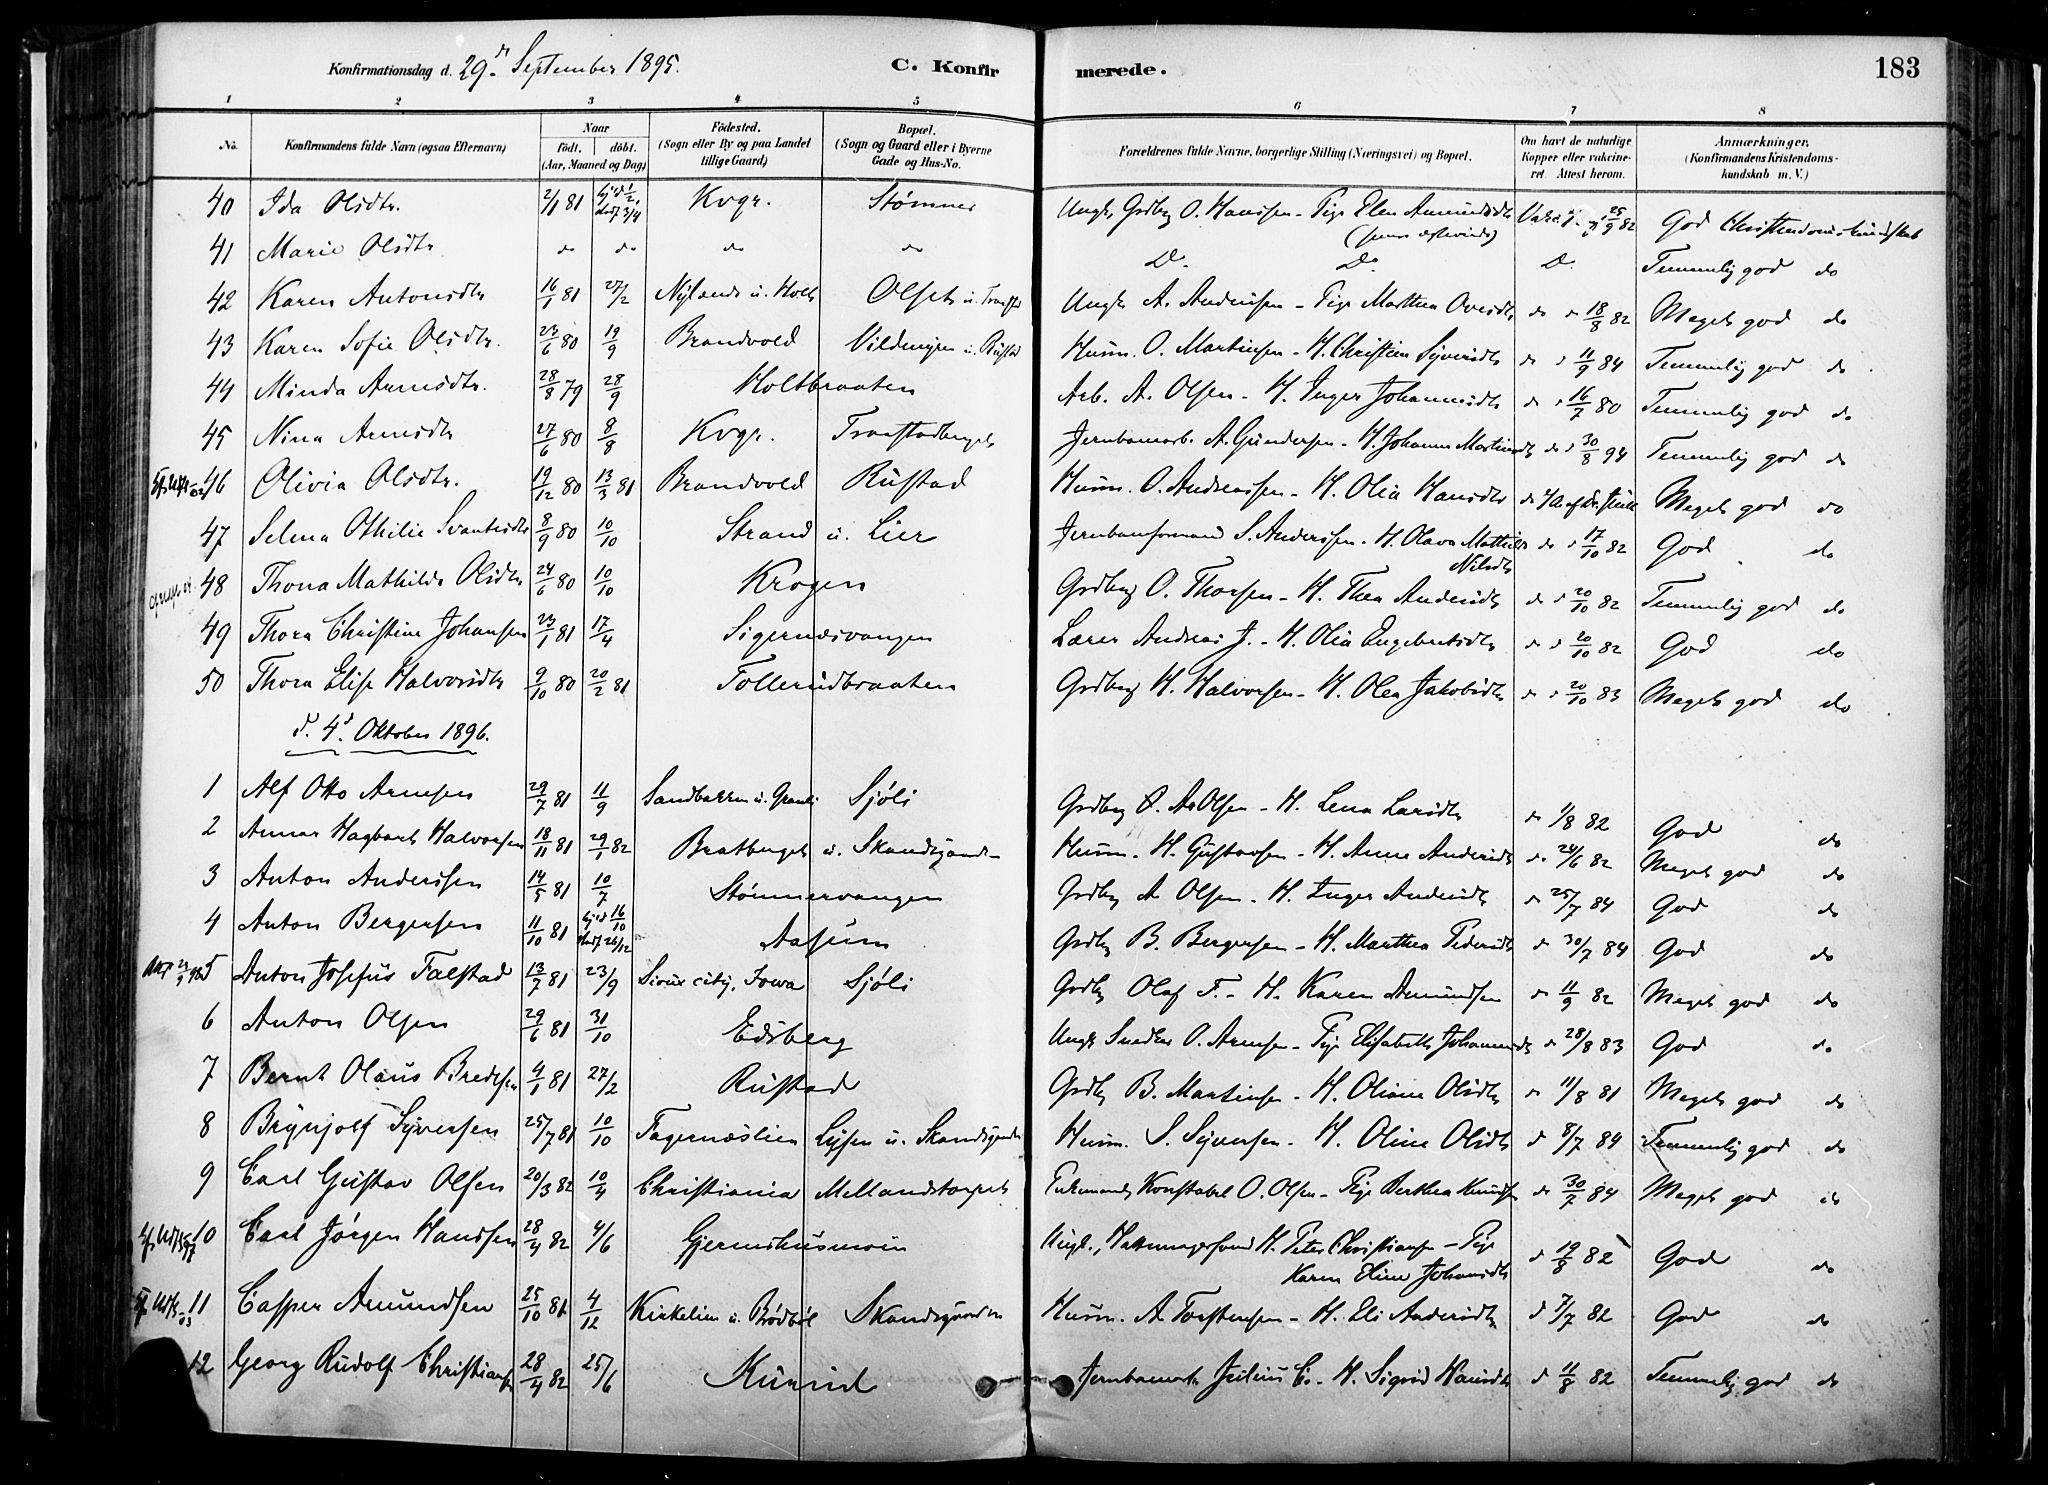 Konfirmationsdag d. 29de September 1895.
C. Konfirmerede.
183
1 2 3 4 5 6 7 8
No.
Konfirmandens fulde Navn (ogsaa Efternavn)
Naar født. døbt. (Aar, Maaned og Dag)
Fødested. (Sogn eller By og paa Landet tillige Gaard)
Bopæl. (Sogn og Gaard eller i Byerne Gade og Hus-No.
Forældrenes fulde Navne, borgerlige Stilling (Næringsvei) og Bopæl.
Om havt de naturlige Kopper eller vakcineret. Attest herom.
Anmærkninger. (Konfirmandens Kristendomskundskab m. V.)
40 Ida Olsdtr. 2/1 81 Kvgr. Stømner Ungk. Grdbrg O. Hanssen - Pige Elen Amundsdtr 25/9 82 God Christendomskundskab
41 Marie Olsdtr do do do do Do. Do. Do. Temmelig god do
42 Karen Antonsdtr 16/1 81 27/2 Nylænde u. Holt Olset u. Ungk A. Andersen - Pige Marthea Ovesdtr do " 18/8 82 Meget god do
43 Karen Sofie Olsdtr. 23/6 80 19/9 Brandvold Vildmyren u. Rustad Husm. O. Martinsen - H. Christine Syversdtr do " 11/9 84 Temmelig god do
44 Minda Arnesdtr. 28/8 79 28/9 Holtbraaten Arb. A. Olsen - H. Inger Johannesdtr do " 16/7 80 Temmelig god do
45 Nina Arnesdtr 27/6 80 8/8 Kvgr. Traastadberget Jernbanearb. A. Gundersen - H. Johanne Martinsdtr do " 30/8 94 Temmelig god do
46 Olivia Olsdtr. 19/12 80 13/3 81 Brandvold Rustad Husm. O. Andreassen - H. Olia Hansdtr Meget god do
47 Selma Othilie Svantesdtr 8/9 80 10/10 Strand u. Lier Jernbaneformand S. Anderssen - H. Olava Mathilde Nilsdtr do " 17/10 82 God do
48 Thona Mathilde Olsdtr 24/6 80 10/10 Krogen Grdbrg O. Thorsen - H. Thea Andersdtr do " 20/10 82 Temmelig god do
49 Thora Christine Johansen 23/1 81 17/4 Sigernæsvangen Lærer Andreas J. - H. Olia Engebretsdtr do " 20/10 82 God do
50 Thora Elise Halvorsdtr 9/10 80 20/2 81 Tollerudbraaten Grdbrg H. Halvorsen - H. Olea Jakobsdtr do " 20/10 83 Meget god do
d. 4d. Oktober 1896.
1 Alf Otto Arnesen 29/7 81 11/9 Sandbakken u. Sjøli Grdbrg A. Olsen - H. Lena Larsdtr do 1/8 82 God do
2 Annar Hagbart Halvorsen 18/11 81 29/1 82 Bratberget u. Skandsgaard Husm. H. Gustavsen - H. Anne Andersdtr do 24/6 82 Meget god do
3 Anton Anderssen 14/5 81 10/7 Stømnervangen Grdbrg A Olsen - H. Inger Andersdtr do 25/7 84 God do
4 Anton Bergersen 11/10 81 16/10 26/12 Aasum Grdbrg B. Bergersen - H. Marthea Pedersdtr do 30/7 84 God do
5 Anton Josefus Falstad 13/7 81 23/9 Sioux city, Iowa Sjøli Grdbrg Olaf F. - H. Karen Amundsen do 11/9 82 Meget god do
6 Anton Olsen 29/6 81 31/10 Edsberg Ungk Snedker O. Arnesen - Pige Elisabeth Johannesdtr do 28/8 83 God do
7 Bernt Olaus Bredesen 4/1 81 27/2 Rustad Grdbrg B. Martinsen - H. Oliane Olsdtr do 11/8 81 Meget god do
8 Brynjolf Syversen 25/7 81 10/10 Fagernæslien Lysen u. Skandsgaarden Husm. S. Syversen - H. Oline Olsdtr do 8/7 84 Temmelig god do
9 Carl Gustav Olsen 20/3 82 10/4 Christiania Mellandstorpet Enkemand, Konstabel O. Olsen - Pige Berthea Knudsen do 30/7 84 Meget god do
10 Carl Jørgen Handsen 28/4 82 4/6 Gjermshusmoen Ungk., H. Peter Christiansen - Pige Karen Eline Johansdtr do 19/8 82 God do
11 Casper Amundsen 25/10 81 4/12 Kirkelien u. Brødbøl Skandsgaarden Husm. A. Torstensen - H. Eli Andersdtr do 7/7 82 God do
12 Georg Rudolf Christiansen 28/4 82 25/6 Kurud Jernbanearb. Julius C. - H. Sigrid Hansdtr do 11/8 82 Temmelig god do